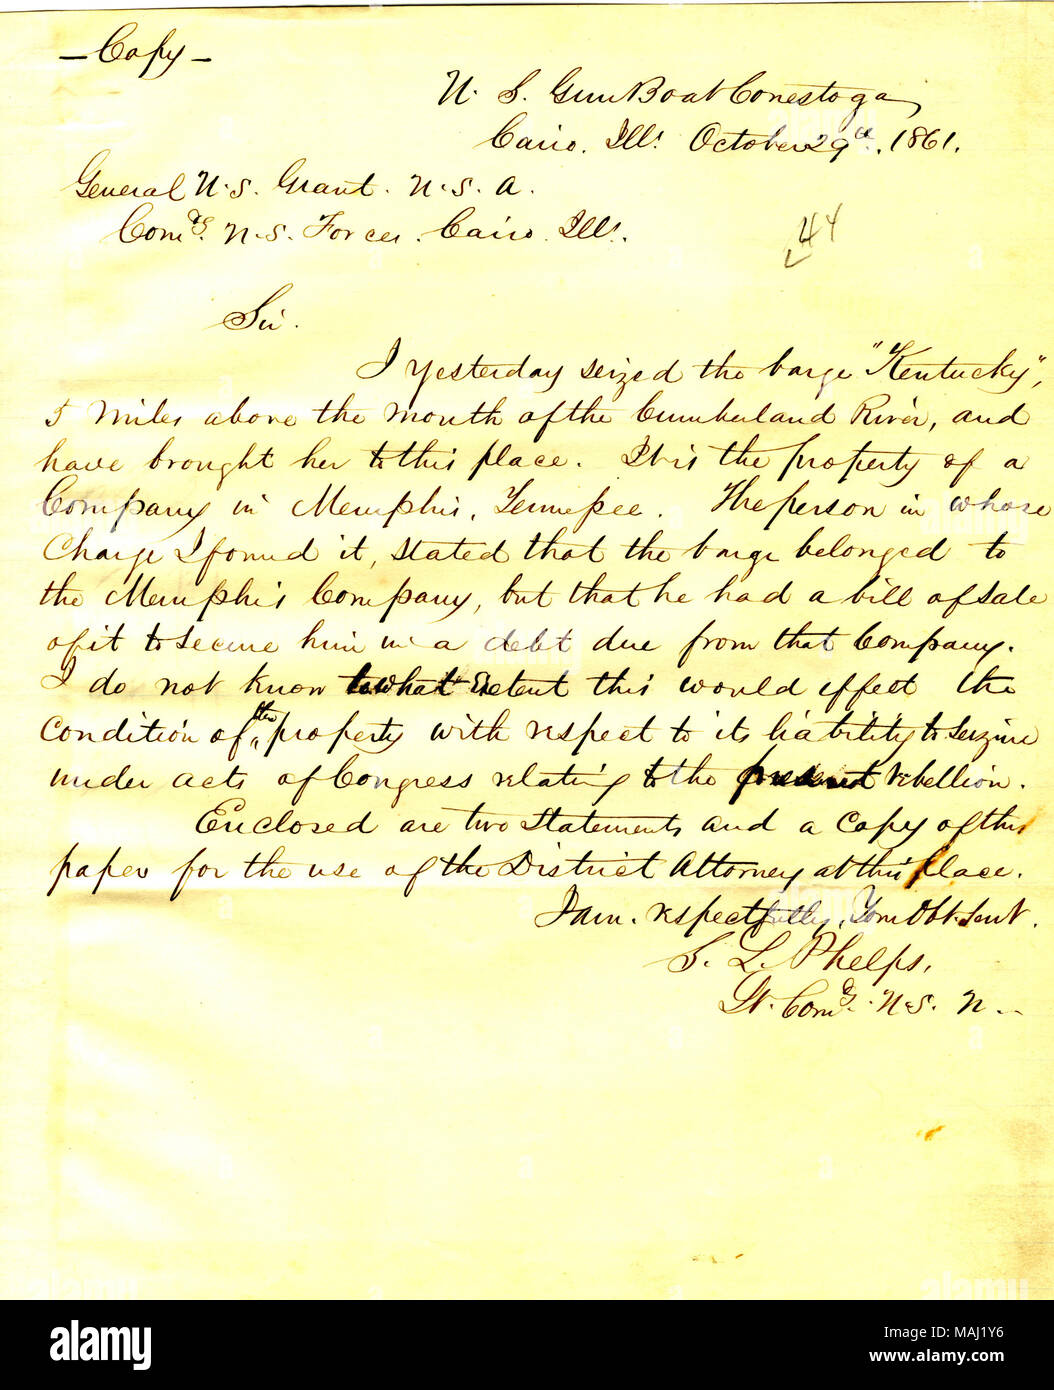 — Copy —
U. S. Gun Boat Conestoga,
Cairo. Ills. October 29th, 1861.
General U. S. Grant. U. S. A.
Comdg. U. S. Forces. Cairo. Ills.
44
Sir.
I yesterday seized the barge "Kentucky",
5 miles above the mouth of the Cumberland River, and
have brought her to this place. It is the property of a
Company in Memphis, Tennessee. The person in whose
Charge I found it, stated that the barge belonged to
the Memphis Company, but that he had a bill of sale
of it to secure him in a debt due from that Company.
I do not know to what extent this would effect the
condition of the property with respect to its liability to seizure
under acts of Congress relating to the present rebellion.
Enclosed are two statements and a copy of this
paper for the use of the District Attorney at this place.
I am. respectfully, Your Obt. Servt.
S. L. Phelps,
Lt. Comdg. U. S. N.
alamy
a
alamy
Image ID: MAJ1Y6
www.alamy.com